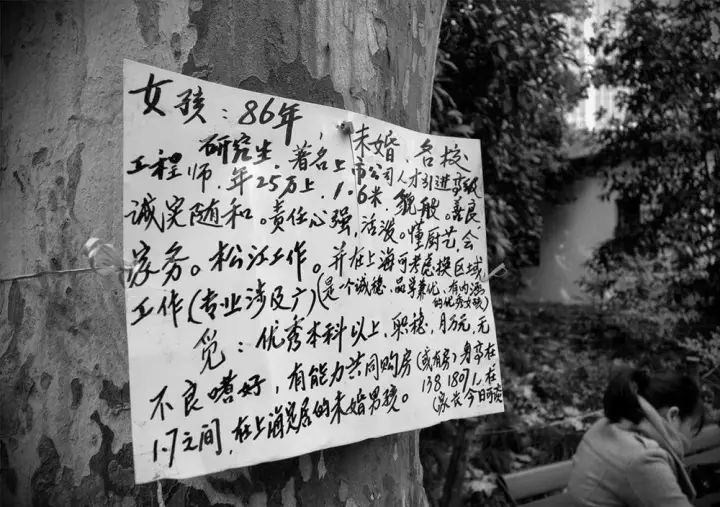 女孩：86年，未婚、名校
研究生，著名上市公司人才引进高级
工程师，年25万上，1.6米，貌般。善良
诚实随和。责任心强，活泼。懂厨艺，会
家务。松江工作。并在上海可考虑换区域
工作（专业涉及广）（是一个诚稳、品学兼优、有内涵
的优秀女孩）
觅：优秀本科以上，职稳，月万元，无
不良嗜好，有能力共同购房（或有房）身高在
1.7之间，在上海定居的未婚男孩。138 1807
（家长今日可谈）